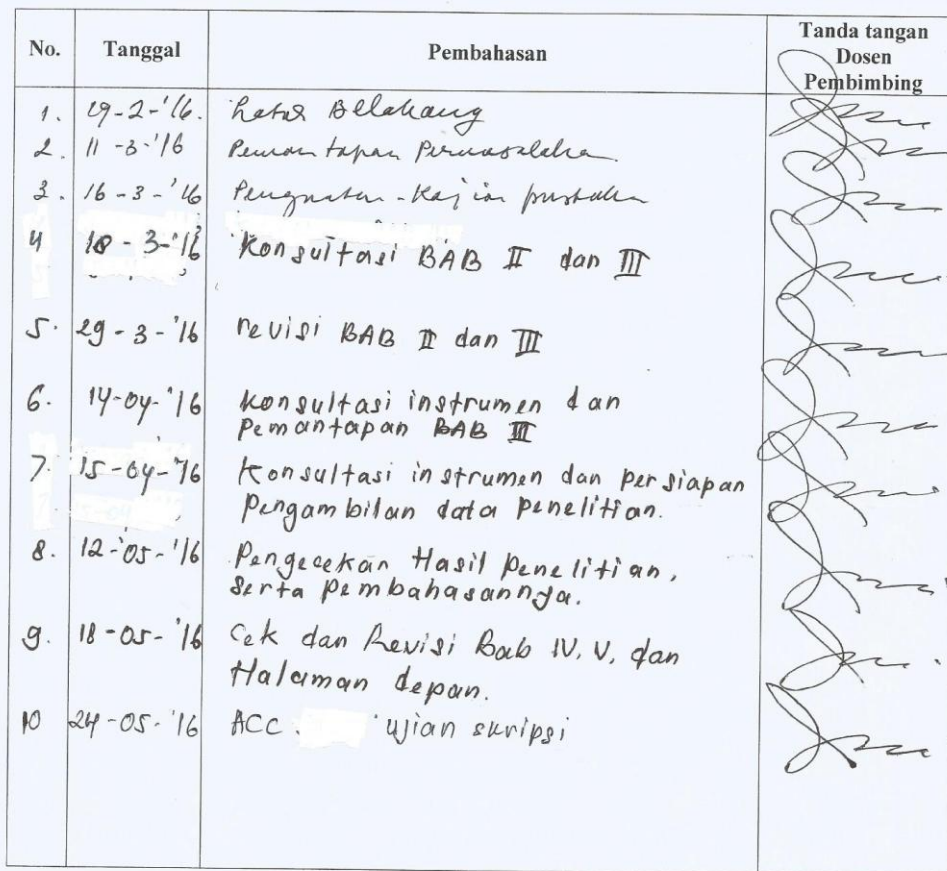 No. Tanggal Pembahasan Tanda tangan
Dosen
Pembimbing
1. 29-2-'16. Latar Belakang
2. 11-3-'16 Pemantapan Permasalahan
3. 16-3-'16 Penguatan - Kajian pustaka
4 18-3-'16 Konsultasi BAB II dan III
5. 29-3-'16 revisi BAB II dan III
6. 14-04-'16 Konsultasi instrumen dan
Pemantapan BAB III
7. 15-04-'16 Konsultasi instrumen dan persiapan
Pengambilan data penelitian.
8. 12-05-'16 Pengecekan Hasil penelitian,
serta pembahasannya.
9. 18-05-'16 Cek dan Revisi Bab IV, V, dan
Halaman depan.
10 24-05-'16 ACC. ujian skripsi